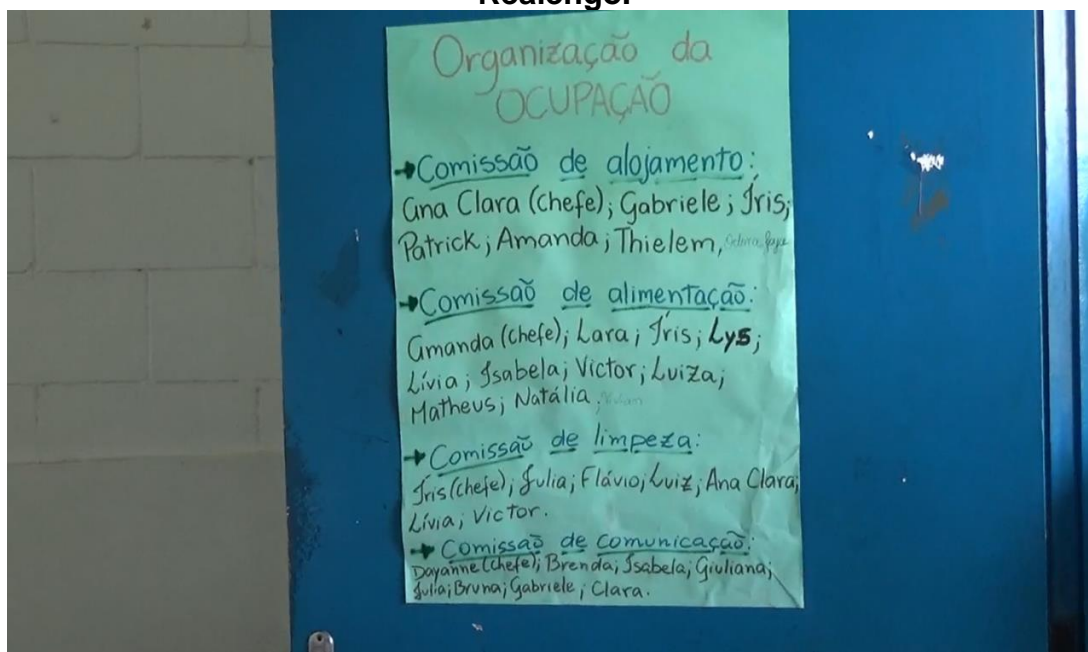 Realengo.
Organização da
OCUPAÇÃO
→Comissão de alojamento:
Ana Clara (chefe); Gabriele; Íris;
Patrick; Amanda; Thielem,
→Comissão de alimentação:
Amanda (chefe); Lara; Íris; Lys;
Lívia; Isabela; Victor; Luiza;
Matheus; Natália;
→Comissão de limpeza:
Íris (chefe); Julia; Flávio; Luiz; Ana Clara;
Lívia; Victor.
→Comissão de comunicação:
Dayanne (chefe); Brenda; Isabela; Giuliana;
Julia; Bruna; Gabriele; Clara.